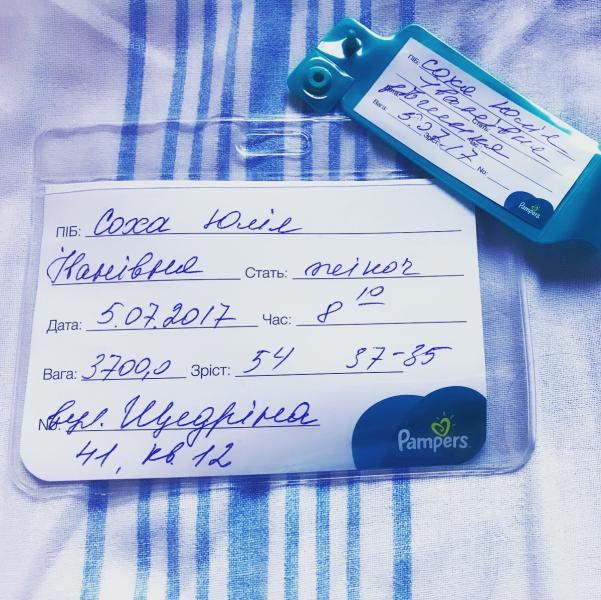 ПІБ: Соха Юлія
Стать: жіноч
Дата: 5.07.2017 Час: 8 10
Вага: 3700,0 Зріст: 54 37-35
No: вул. Щедріна
41, кв. 12
Pampers
ПІБ: Соха Юлія
Вага:
5.07.17
No:
Pampers